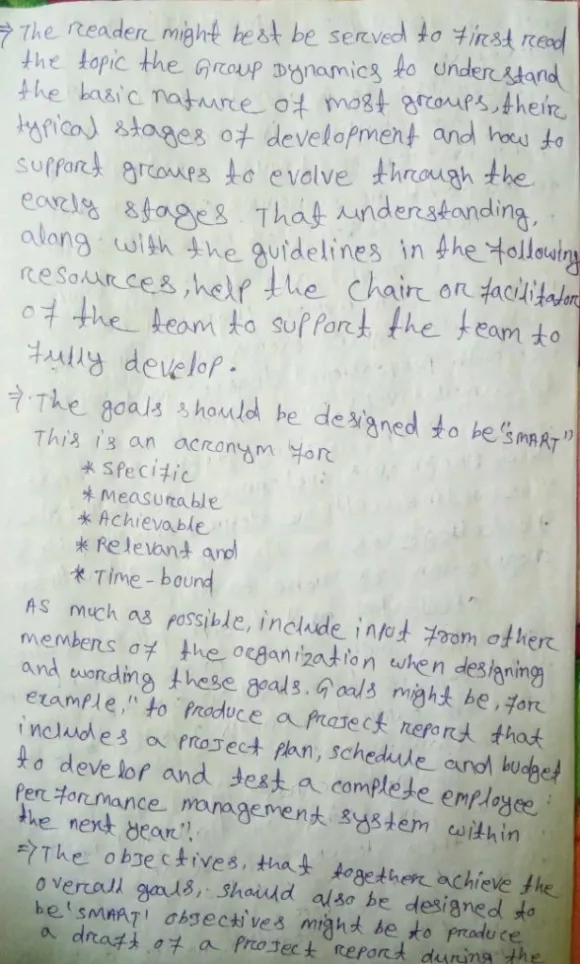 ⇒ The reader might best be served to first read
the topic the Group Dynamics to understand
the basic nature of most groups, their
typical stages of development and how to
support groups to evolve through the
early stages. That understanding,
along with the guidelines in the following
resources, help the chair or facilitator
of the team to support the team to
fully develop.
⇒ The goals should be designed to be "SMART"
This is an acronym for
* Specific
* Measurable
* Achievable
* Relevant and
* Time-bound
As much as possible, include input from other
members of the organization when designing
and wording these goals. Goals might be, for
example, "to produce a project report that
includes a project plan, schedule and budget
to develop and test a complete employee
performance management system within
the next year".
⇒ The objectives, that together achieve the
overall goals, should also be designed to
be 'SMART' objectives might be to produce
a draft of a project report during the